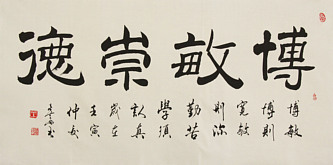 博敏崇德
博敏
博則
寬敏
則深
勤若
學須
認真
歲在
壬寅
仲夏